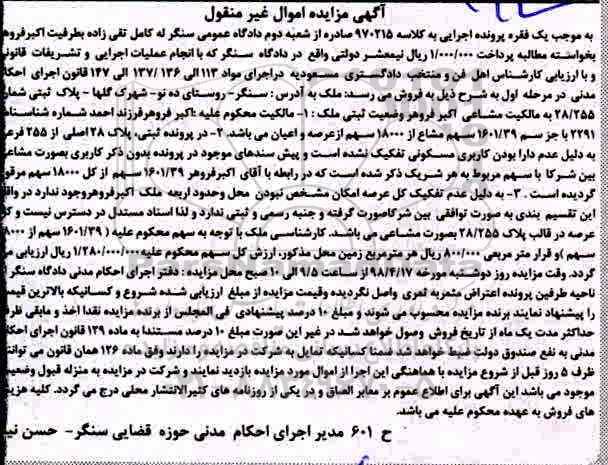 آگهی مزایده اموال غیر منقول
به موجب یک فقره پرونده اجرایی به کلاسه ۹۷۰۲۱۵ صادره از شعبه دوم دادگاه عمومی سنگر له کامل تقی زاده بطرفیت اکبرفروهر
بخواسته مطالبه پرداخت ۱/۰۰۰/۰۰۰ ریال نیمعشر دولتی واقع در دادگاه سنگر که با انجام عملیات اجرایی و تشریفات قانونی
و با ارزیابی کارشناس اهل فن و منتخب دادگستری مسعودیه دراجرای مواد ۱۱۳ الی ۱۳۶ /۱۳۷ الی ۱۴۷ قانون اجرای احکام
مدنی در مرحله اول به شرح ذیل به فروش می رسد: ملک به آدرس : سنگر- روستای ده نو- شهرک گلها - پلاک ثبتی شماره
۲۸/۲۵۵ به مالکیت مشاعی اکبر فروهر وضعیت ثبتی ملک : ۱- مالکیت محکوم علیه :اکبر فروهرفرزند احمد شماره شناسنامه
۲۲۹۱ با جز سم ۱۶۰۱/۳۹ سهم مشاع از ۱۸۰۰۰ سهم ازعرصه و اعیان می باشد. ۲- در پرونده ثبتی، پلاک ۲۸ اصلی از ۲۵۵ فرعی
به دلیل عدم دارا بودن کاربری مسکونی تفکیک نشده است و پیش سندهای موجود در پرونده بدون ذکر کاربری بصورت مشاعی
بین شرکا با سهم مربوط به هر شریک ذکر شده است که در رابطه با آقای اکبرفروهر ۱۶۰۱/۳۹ سهم از کل ۱۸۰۰۰ سهم مرقوم
گردیده است . ۳- به دلیل عدم تفکیک کل عرصه امکان مشخص نبودن محل وحدود اربعه ملک اکبرفروهروجود ندارد در واقع
این تقسیم بندی به صورت توافقی بین شرکاصورت گرفته و جنبه رسمی و ثبتی ندارد و لذا اسناد مستدل در دسترس نیست و کل
عرصه در قالب پلاک ۲۸/۲۵۵ بصورت مشاعی می باشد. کارشناسی ملک با توجه به سهم محکوم علیه ( ۱۶۰۱/۳۹ سهم از ۱۸۰۰۰
سهم )و قرار متر مربعی ۸۰۰/۰۰۰ ریال هر مترمربع زمین محل مذکور، ارزش کل سهم محکوم علیه ۱/۲۸۰/۰۰۰/۰۰۰ ریال ارزیابی می
گردد. وقت مزایده روز دوشنبه مورخه ۹۸/۴/۱۷ از ساعت ۹/۵ الی ۱۰ صبح محل مزایده : دفتر اجرای احکام مدنی دادگاه سنگر از
ناحیه طرفین پرونده اعتراض مثمربه ثمری واصل نگردیده وقیمت مزایده از مبلغ ارزیابی شده شروع و کسانیکه بالاترین قیمت
را پیشنهاد نمایند برنده مزایده محسوب می شوند و مبلغ ۱۰ درصد پیشنهادی فی المجلس از برنده مزایده نقدا اخذ و مابقی ظرف
حداکثر مدت یک ماه از تاریخ فروش وصول خواهد شد در غیر این صورت مبلغ ۱۰ درصد مستندا به ماده ۱۲۹ قانون اجرای احکام
مدنی به نفع صندوق دولت ضبط خواهد شد ضمنا کسانیکه تمایل به شرکت در مزایده را دارند وفق ماده ۱۲۶ همان قانون می توانند
ظرف ۵ روز قبل از شروع مزایده با هماهنگی این اجرا از اموال مورد مزایده بازدید نمایند و شرکت در مزایده به منزله قبول وضعیت
موجود می باشد این آگهی برای اطلاع عموم بر معابر الصاق و در یکی از روزنامه های کثیرالانتشار محلی درج می گردد. کلیه هزینه
های فروش به عهده محکوم علیه می باشد.
ح ۶۰۱ مدیر اجرای احکام مدنی حوزه قضایی سنگر- حسن